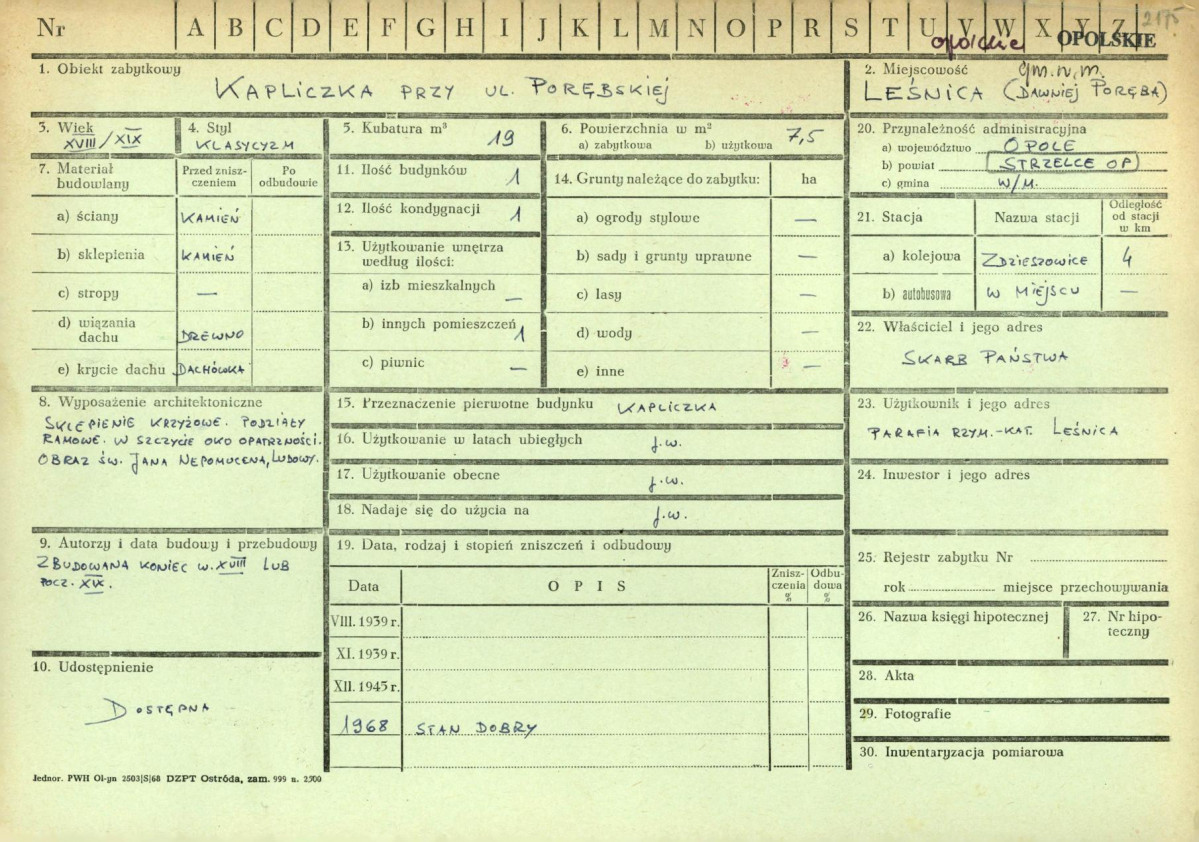 Nr A B C D E F G H I J K L M N O P R S T U V W X Y Z
opolskie OPOLSKIE
1. Obiekt zabytkowy
KAPLICZKA PRZY UL. PORĘBSKIEJ
2. Miejscowość gm.n.m.
LEŚNICA (DAWNIEJ PORĘBA)
3. Wiek
XVIII/XIX
4. Styl
KLASYCYZM
5. Kubatura m³
19
6. Powierzchnia w m²
a) zabytkowa b) użytkowa
7,5
20. Przynależność administracyjna
a) województwo OPOLE
b) powiat STRZELCE OP
c) gmina W/M.
7. Materiał budowlany
Przed zniszczeniem
Po odbudowie
a) ściany KAMIEŃ
b) sklepienia KAMIEŃ
c) stropy —
d) wiązania dachu DREWNO
e) krycie dachu DACHÓWKA
11. Ilość budynków 1
12. Ilość kondygnacji 1
13. Użytkowanie wnętrza
według ilości:
a) izb mieszkalnych —
b) innych pomieszczeń 1
c) piwnic —
14. Grunty należące do zabytku: ha
a) ogrody stylowe —
b) sady i grunty uprawne —
c) lasy —
d) wody —
e) inne —
21. Stacja Nazwa stacji Odległość od stacji w km
a) kolejowa ZDZIESZOWICE 4
b) autobusowa W MIEJSCU —
22. Właściciel i jego adres
SKARB PAŃSTWA
8. Wyposażenie architektoniczne
SKLEPIENIE KRZYŻOWE. PODZIAŁY
RAMOWE. W SZCZYCIE OKO OPATRZNOŚCI.
OBRAZ ŚW. JANA NEPOMUCENA, LUDOWY.
15. Przeznaczenie pierwotne budynku KAPLICZKA
16. Użytkowanie w latach ubiegłych j.w.
17. Użytkowanie obecne j.w.
18. Nadaje się do użycia na j.w.
23. Użytkownik i jego adres
PARAFIA RZYM.-KAT. LEŚNICA
24. Inwestor i jego adres
9. Autorzy i data budowy i przebudowy
ZBUDOWANA KONIEC W. XVIII LUB
POCZ. XIX.
19. Data, rodzaj i stopień zniszczeń i odbudowy
Data O P I S Zniszczenia % Odbudowa %
VIII. 1939 r.
XI. 1939 r.
XII. 1945 r.
1968 STAN DOBRY
25. Rejestr zabytku Nr
rok miejsce przechowywania
26. Nazwa księgi hipotecznej
27. Nr hipoteczny
10. Udostępnienie
DOSTĘPNA
28. Akta
29. Fotografie
30. Inwentaryzacja pomiarowa
Jednor. PWH Ol-yn 2503|S|68 DZPT Ostróda, zam. 999 n. 2500